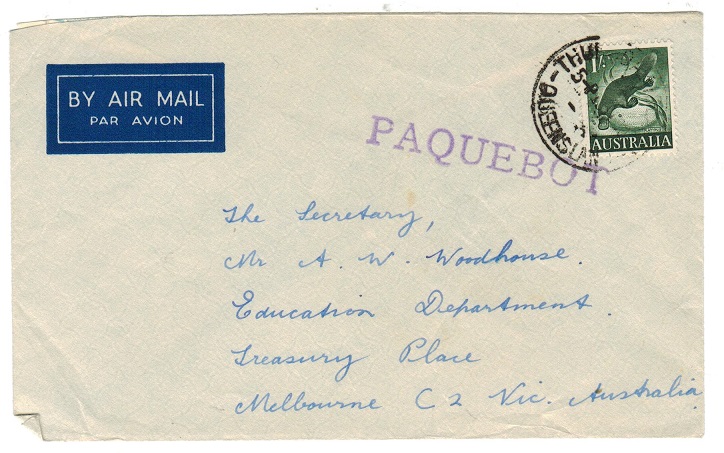 BY AIR MAIL
PAR AVION
PAQUEBOT
1/-
AUSTRALIA
The Secretary,
Mr A. W. Woodhouse.
Education Department.
Treasury Place
Melbourne C 2 Vic. Australia